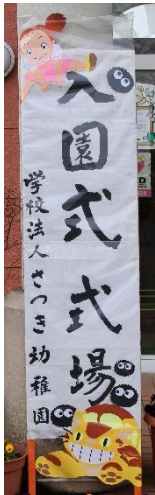 入園式式場
学校法人さつき幼稚園